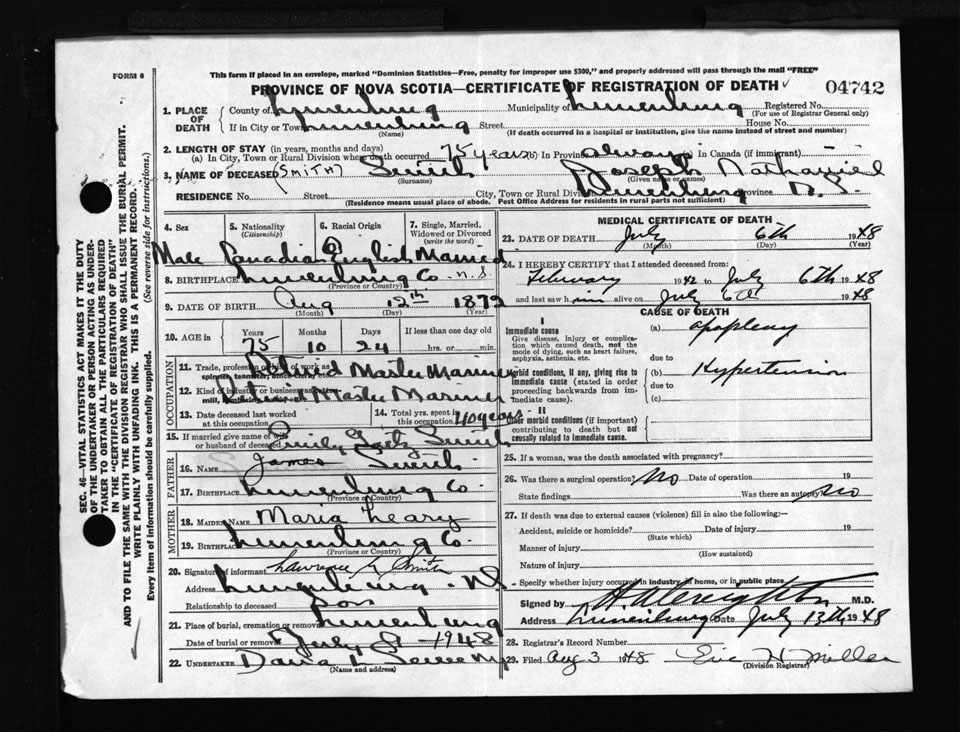 FORM 6
This form if placed in an envelope, marked "Dominion Statistics—Free, penalty for improper use $300," and properly addressed will pass through the mail "FREE"
PROVINCE OF NOVA SCOTIA—CERTIFICATE OF REGISTRATION OF DEATH
04742
1. PLACE OF DEATH
County of Lunenburg Municipality of Lunenburg Registered No. (For use of Registrar General only)
If in City or Town Lunenburg Street House No.
(Name) (If death occurred in a hospital or institution, give the name instead of street and number)
2. LENGTH OF STAY (in years, months and days)
(a) In City, Town or Rural Division where death occurred 75 years (b) In Province always (c) In Canada (if immigrant)
3. NAME OF DECEASED (SMITH) Smith Joseph Nathaniel
(Surname) (Given name or names)
RESIDENCE No. Street City, Town or Rural Div. Lunenburg Province N.S.
(Residence means usual place of abode. Post Office Address for residents in rural parts not sufficient)
4. Sex
5. Nationality (Citizenship)
6. Racial Origin
7. Single, Married, Widowed or Divorced (write the word)
Male Canadian English Married
8. BIRTHPLACE Lunenburg Co. N.S.
(Province or Country)
9. DATE OF BIRTH Aug 12th 1872
(Month) (Day) (Year)
10. AGE in Years Months Days If less than one day old
75 10 24 hrs. or min.
OCCUPATION
11. Trade, profession or kind of work as spinner, teamster, office clerk, etc. Retired Master Mariner
12. Kind of industry or business as cotton mill, Retired Master Mariner
13. Date deceased last worked at this occupation
14. Total yrs. spent in this occupation 40 years
15. If married give name of wife or husband of deceased Emily Getz Smith
FATHER
16. Name James Smith
17. Birthplace Lunenburg Co.
(Province or Country)
MOTHER
18. Maiden Name Maria Leary
19. Birthplace Lunenburg Co.
(Province or Country)
20. Signature of informant Lawrence Smith
Address Lunenburg N.S.
Relationship to deceased Son
21. Place of burial, cremation or removal Lunenburg
Date of burial or removal July 8 1948
22. UNDERTAKER
(Name and address)
MEDICAL CERTIFICATE OF DEATH
23. DATE OF DEATH July 6th 1948
(Month) (Day) (Year)
24. I HEREBY CERTIFY that I attended deceased from:
February 1942 to July 6th 1948
and last saw him alive on July 6th 1948
CAUSE OF DEATH
I
Immediate cause
Give disease, injury or complication which caused death, not the mode of dying, such as heart failure, asphyxia, asthenia, etc.
(a) apoplexy
due to
Morbid conditions, if any, giving rise to immediate cause (stated in order proceeding backwards from immediate cause).
(b) Hypertension
due to
(c)
II
Other morbid conditions (if important) contributing to death but not causally related to immediate cause.
25. If a woman, was the death associated with pregnancy?
26. Was there a surgical operation? No Date of operation 19
State findings Was there an autopsy? No
27. If death was due to external causes (violence) fill in also the following:—
Accident, suicide or homicide? Date of injury 19
(State which)
Manner of injury
(How sustained)
Nature of injury
Specify whether injury occurred in industry, in home, or in public place
Signed by M.D.
Address Lunenburg Date July 13th 1948
28. Registrar's Record Number
29. Filed Aug 3 1948 Eric H Miller
(Division Registrar)
SEC. 46—VITAL STATISTICS ACT MAKES IT THE DUTY
OF THE UNDERTAKER OR PERSON ACTING AS UNDER-
TAKER TO OBTAIN ALL THE PARTICULARS REQUIRED
IN THE "CERTIFICATE OF REGISTRATION OF DEATH"
AND TO FILE THE SAME WITH THE DIVISION REGISTRAR WHO SHALL ISSUE THE BURIAL PERMIT.
WRITE PLAINLY WITH UNFADING INK. THIS IS A PERMANENT RECORD.
Every item of information should be carefully supplied. (See reverse side for instructions.)